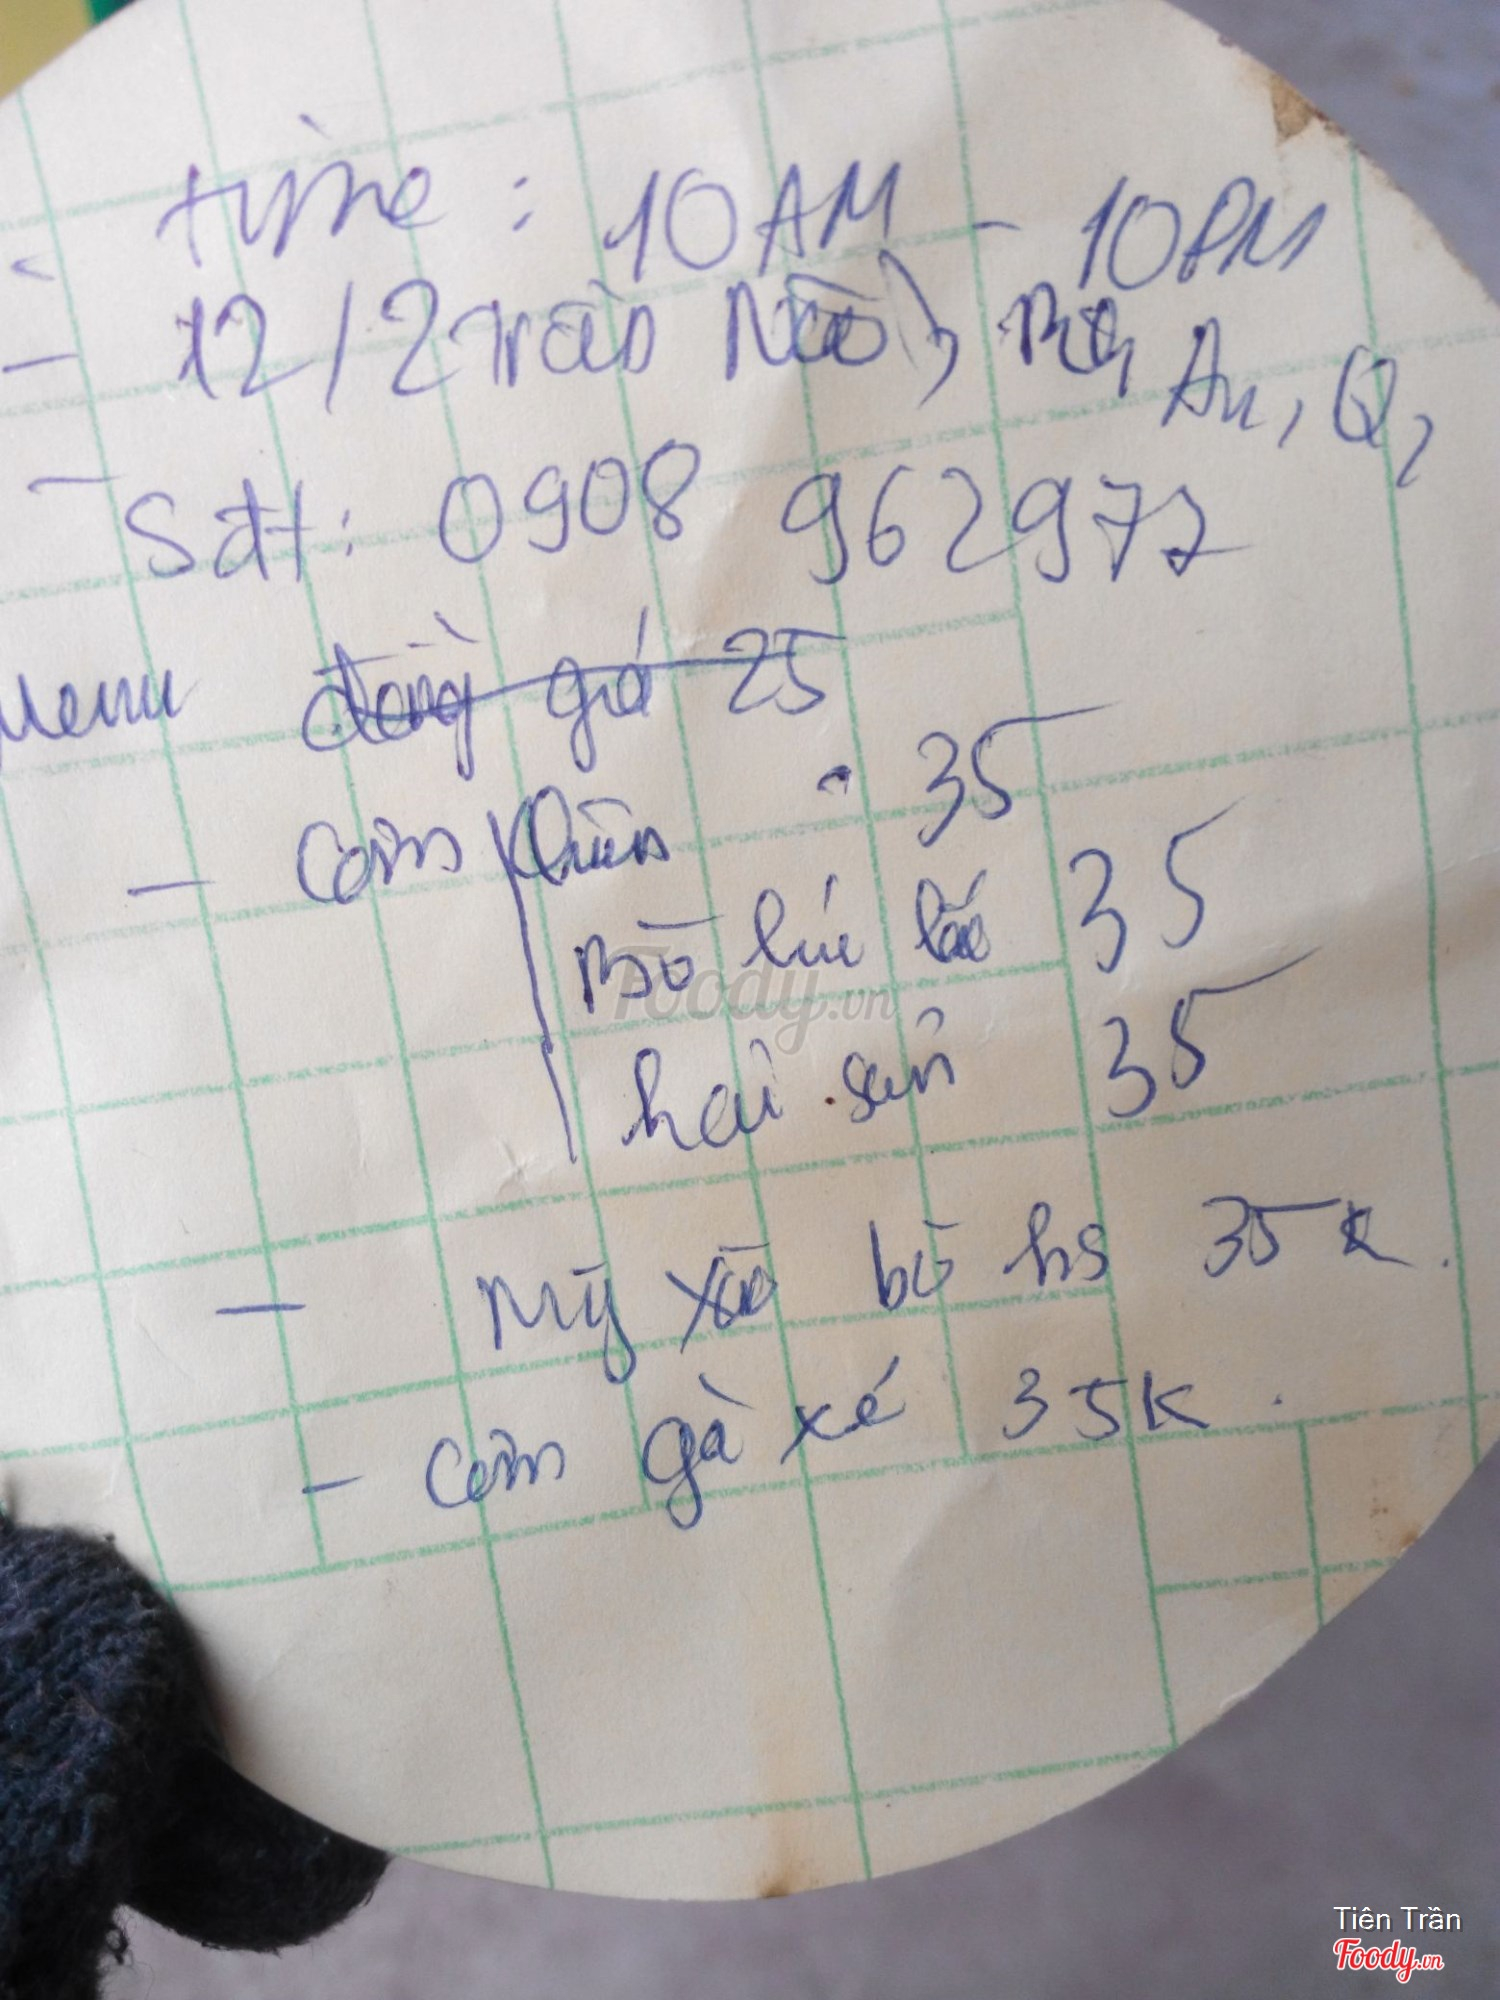 - time : 10AM - 10PM
- 12/2 Trần Não, Bình An, Q2
- Sđt: 0908 962972
Menu đồng giá 25
- Cơm chiên 35
Bò lúc lắc 35
hải sản 35
Foody.vn
- Mỳ xào bò hs 35K.
- Cơm gà xé 35K.
Tiên Trần
Foody.vn